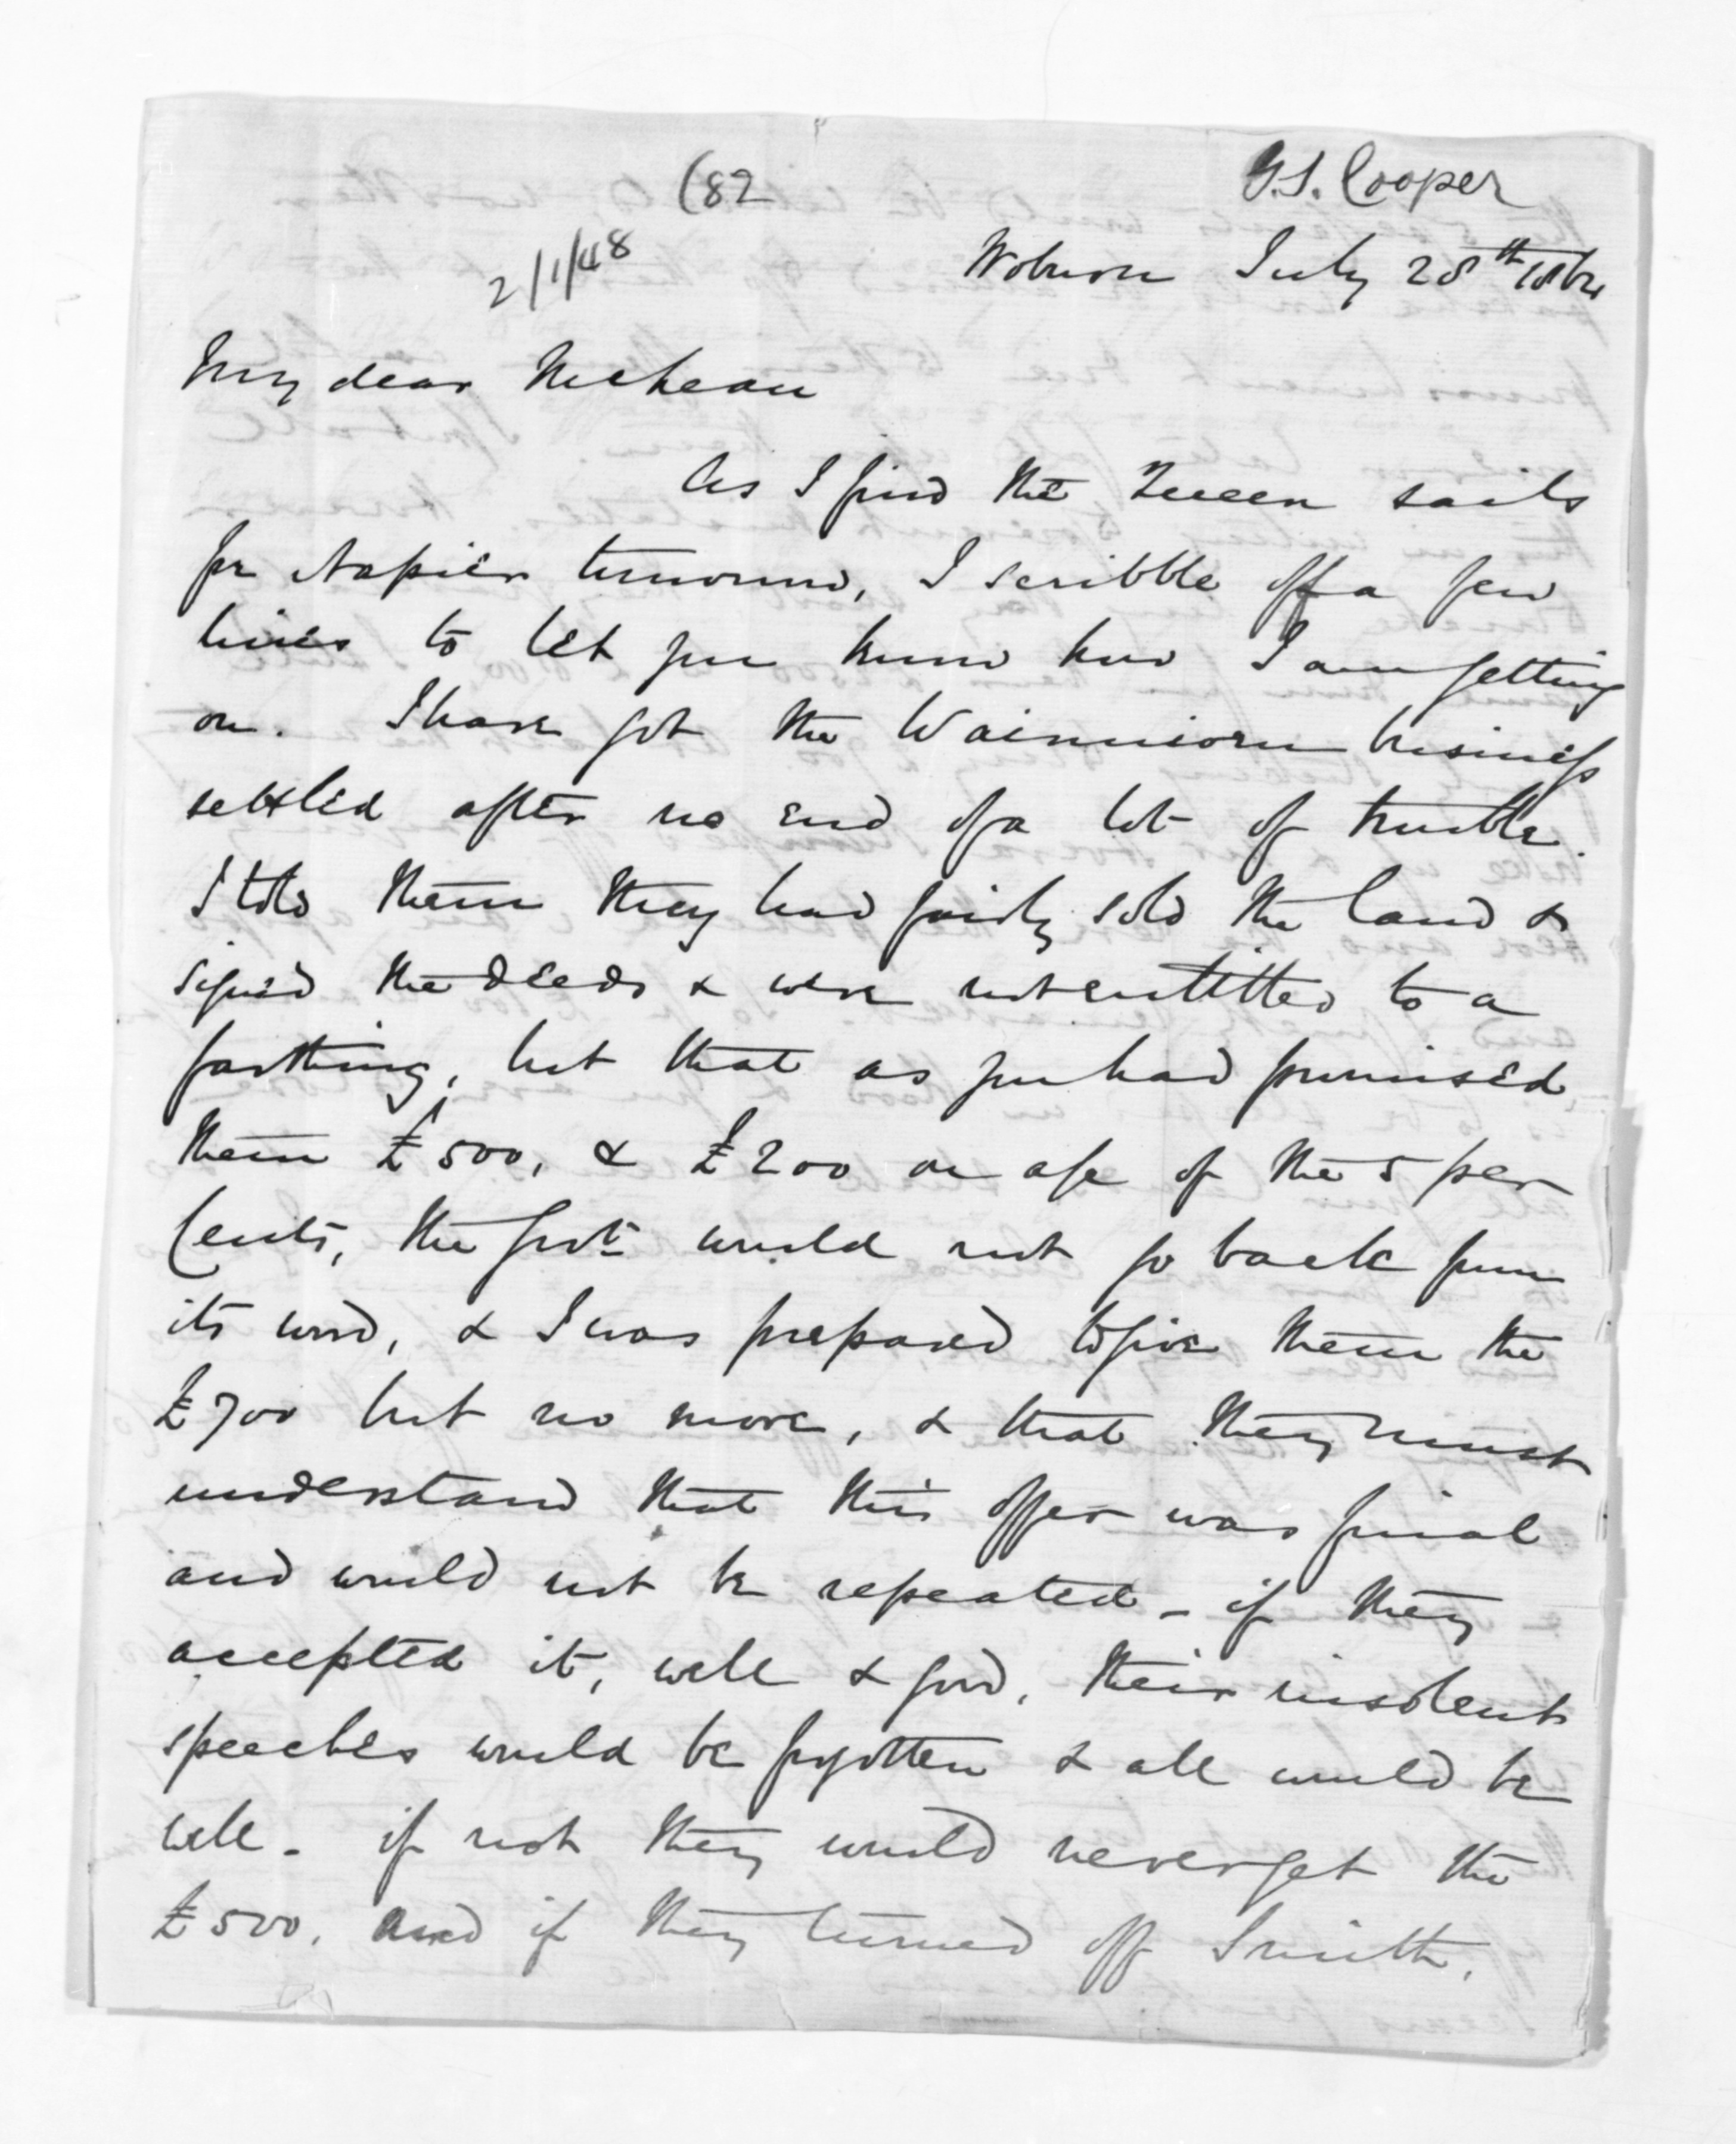 (82
G.S. Cooper
2/1/48
Woburn July 28th 1862
My dear McLean
As I find the Queen sails
for Napier tomorrow, I scribble off a few
lines to let you know how I am getting
on. I have got the business
settled after no end of a lot of trouble.
I told them they had fairly sold the land &
signed the deeds & were not entitled to a
farthing, but that as you had promised
them £500, & £200 on a/c of the 5 per
Cents, the Govt. would not go back from
its word, & I was prepared to give them the
£700 but no more, & that they must
understand that this offer was final
and would not be repeated - if they
accepted it, well & good, their insolent
speeches would be forgotten & all would be
well - if not they would never get the
£500, and if they turned off Smith,